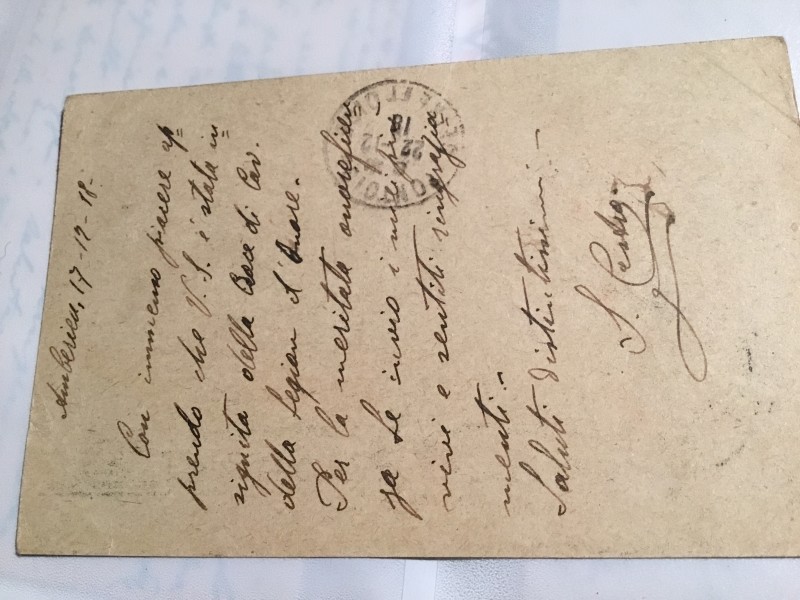 17-12-18.
Con immenso piacere ap=
prendo che V. S. è stata in=
signita della Croce di Cav.
della Legion d'Onore.
Per la meritata onorificen=
za Le invio i miei più
vivi e sentiti ringrazia=
menti.-
Saluti distintissimi.-
S.
PONTOI
22
12
18